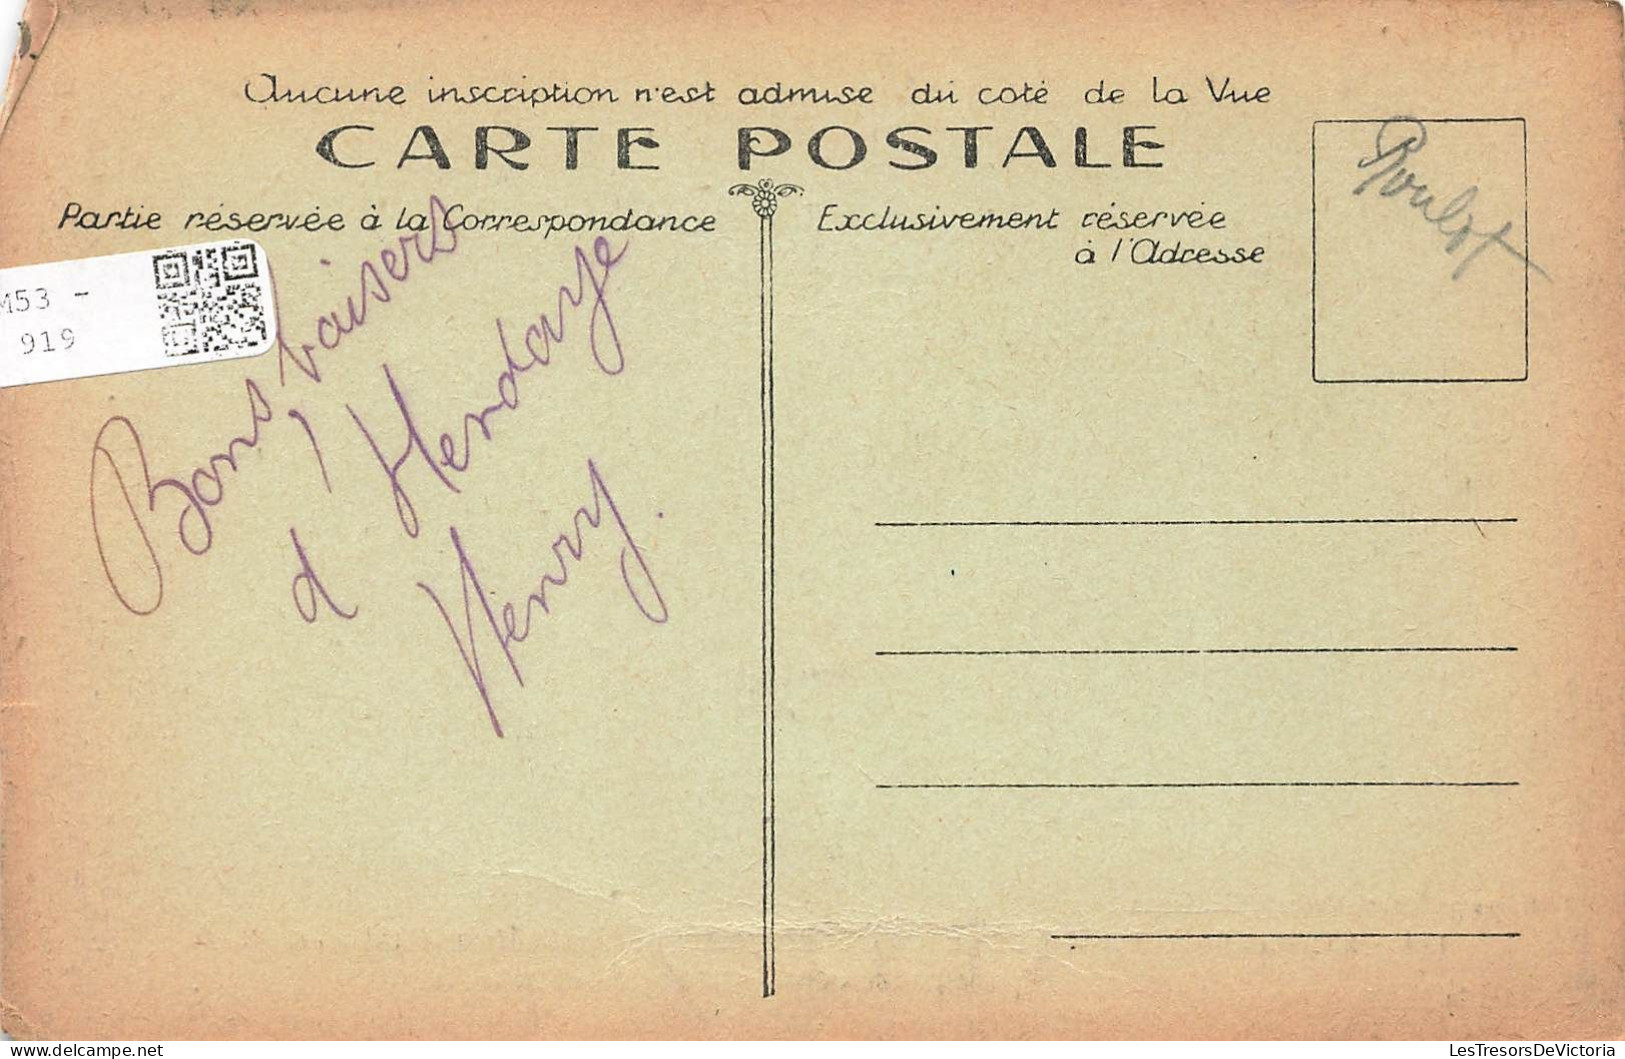 Aucune inscription n'est admise du coté de la Vue
CARTE POSTALE
Partie réservée à la Correspondance
Exclusivement réservée
à l'Adresse
M53 -
919
Bons baisers
d'Hendaye
Henry.
LesTresorsDeVictoria